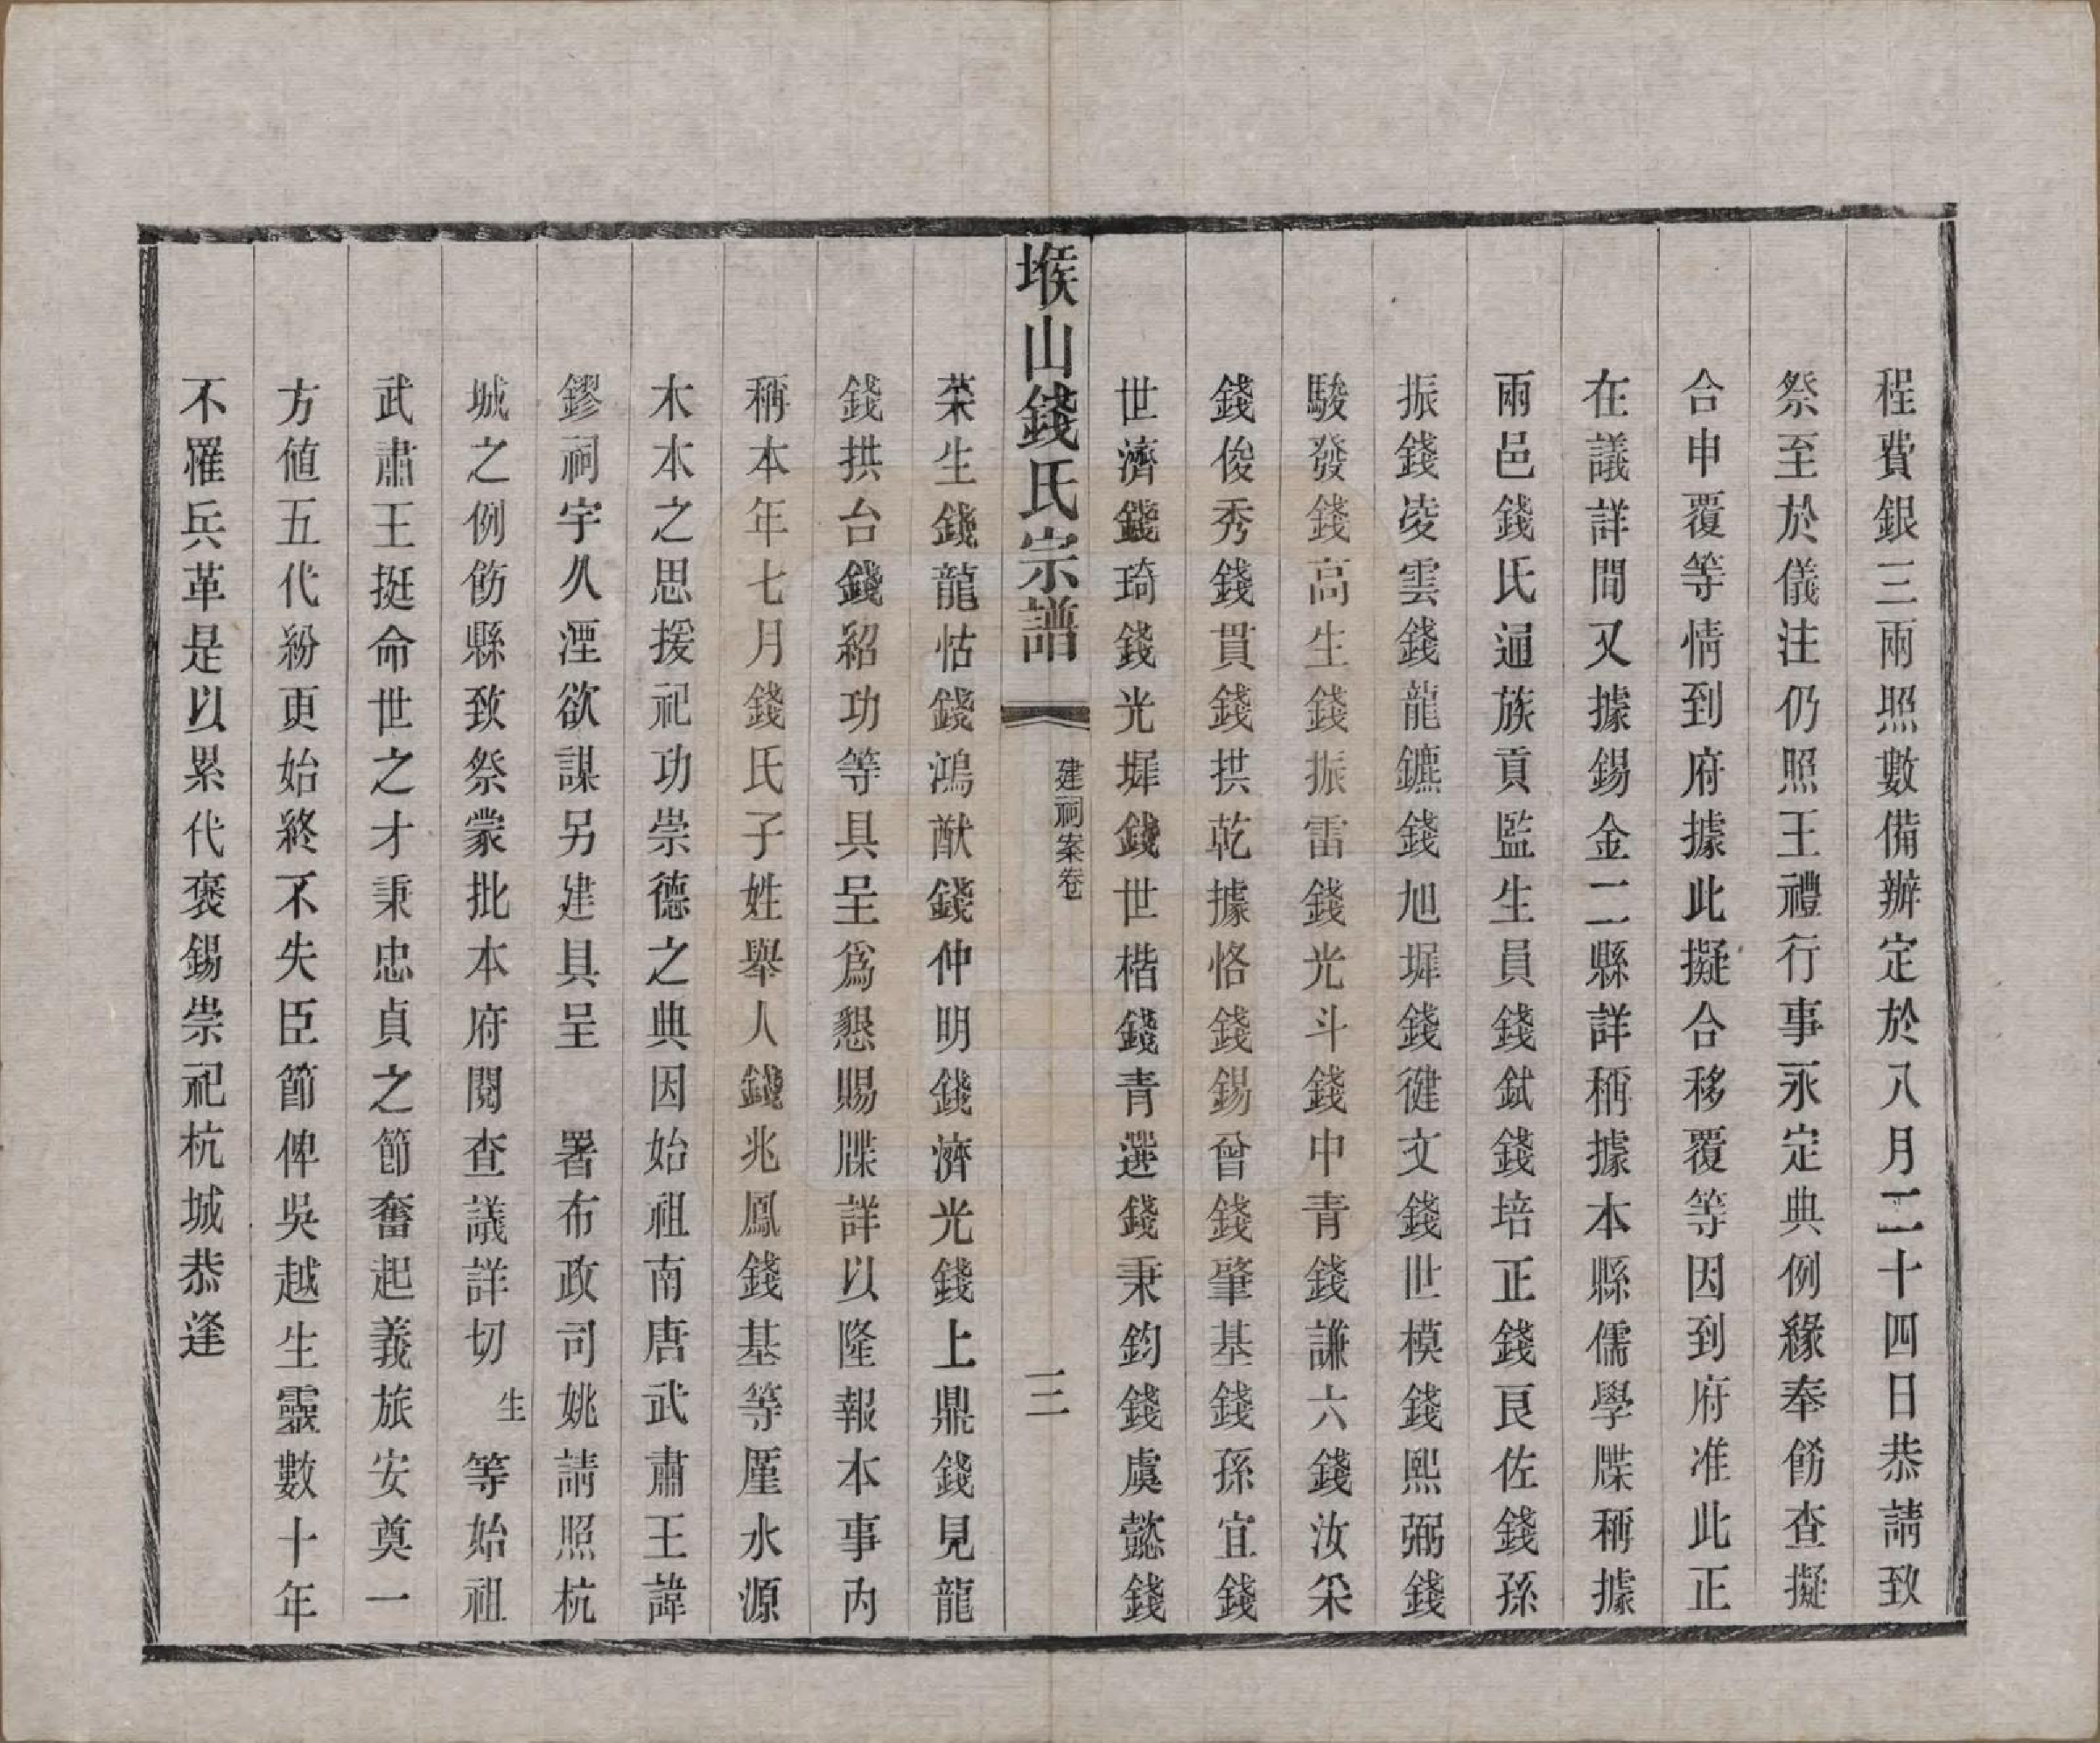 程費銀三兩照數備辦定於八月二十四日恭請致
祭至於儀注仍照王禮行事永定典例緣奉飭查擬
合申覆等情到府據此擬合移覆等因到府准此正
在議詳間又據錫金二縣詳稱據本縣儒學牒稱據
兩邑錢氏通族貢監生員錢錻錢培正錢艮佐錢孫
振錢凌雲錢龍鑣錢旭墀錢健文錢世模錢熙弼錢
駿發錢高生錢振雷錢光斗錢中青錢謙六錢汝采
錢俊秀錢貫錢拱乾據恪錢錫曾錢肇基錢孫宜錢
世濟錢琦錢光墀錢世楷錢青選錢秉鈞錢虞懿錢
堠山錢氏宗譜
建祠案卷
三
荣生錢龍怙錢鴻猷錢仲明錢濟光錢上鼎錢見龍
錢拱台錢紹功等具呈為懇賜牒詳以隆報本事內
稱本年七月錢氏子姓舉人錢兆鳳錢基等厪水源
木本之思援祀功崇德之典因始祖南唐武肅王諱
鏐祠宇久湮欲謀另建具呈 署布政司姚請照杭
城之例飭縣致祭蒙批本府閱查議詳切生等始祖
武肅王挺命世之才秉忠貞之節奮起義旅安奠一
方値五代紛更始終不失臣節俾吳越生靈數十年
不罹兵革是以累代褒錫崇祀杭城恭逢